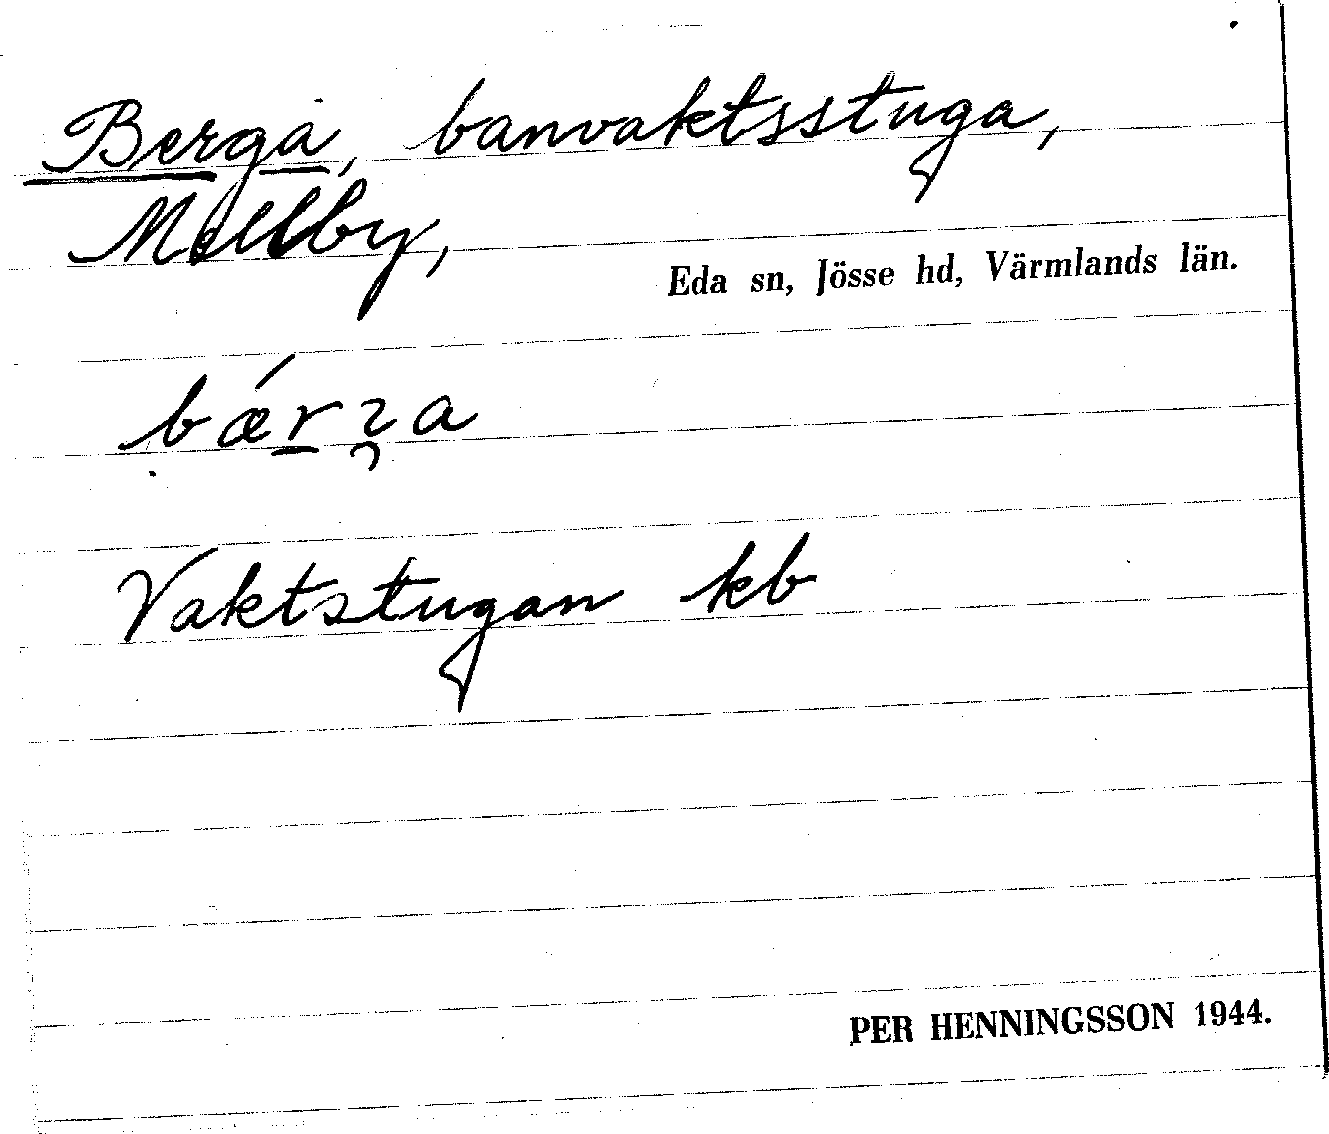 Berga, banvaktsstuga,
Mellby,
Eda sn, Jösse hd, Värmlands län.
Vaktstugan kb
PER HENNINGSSON 1944.